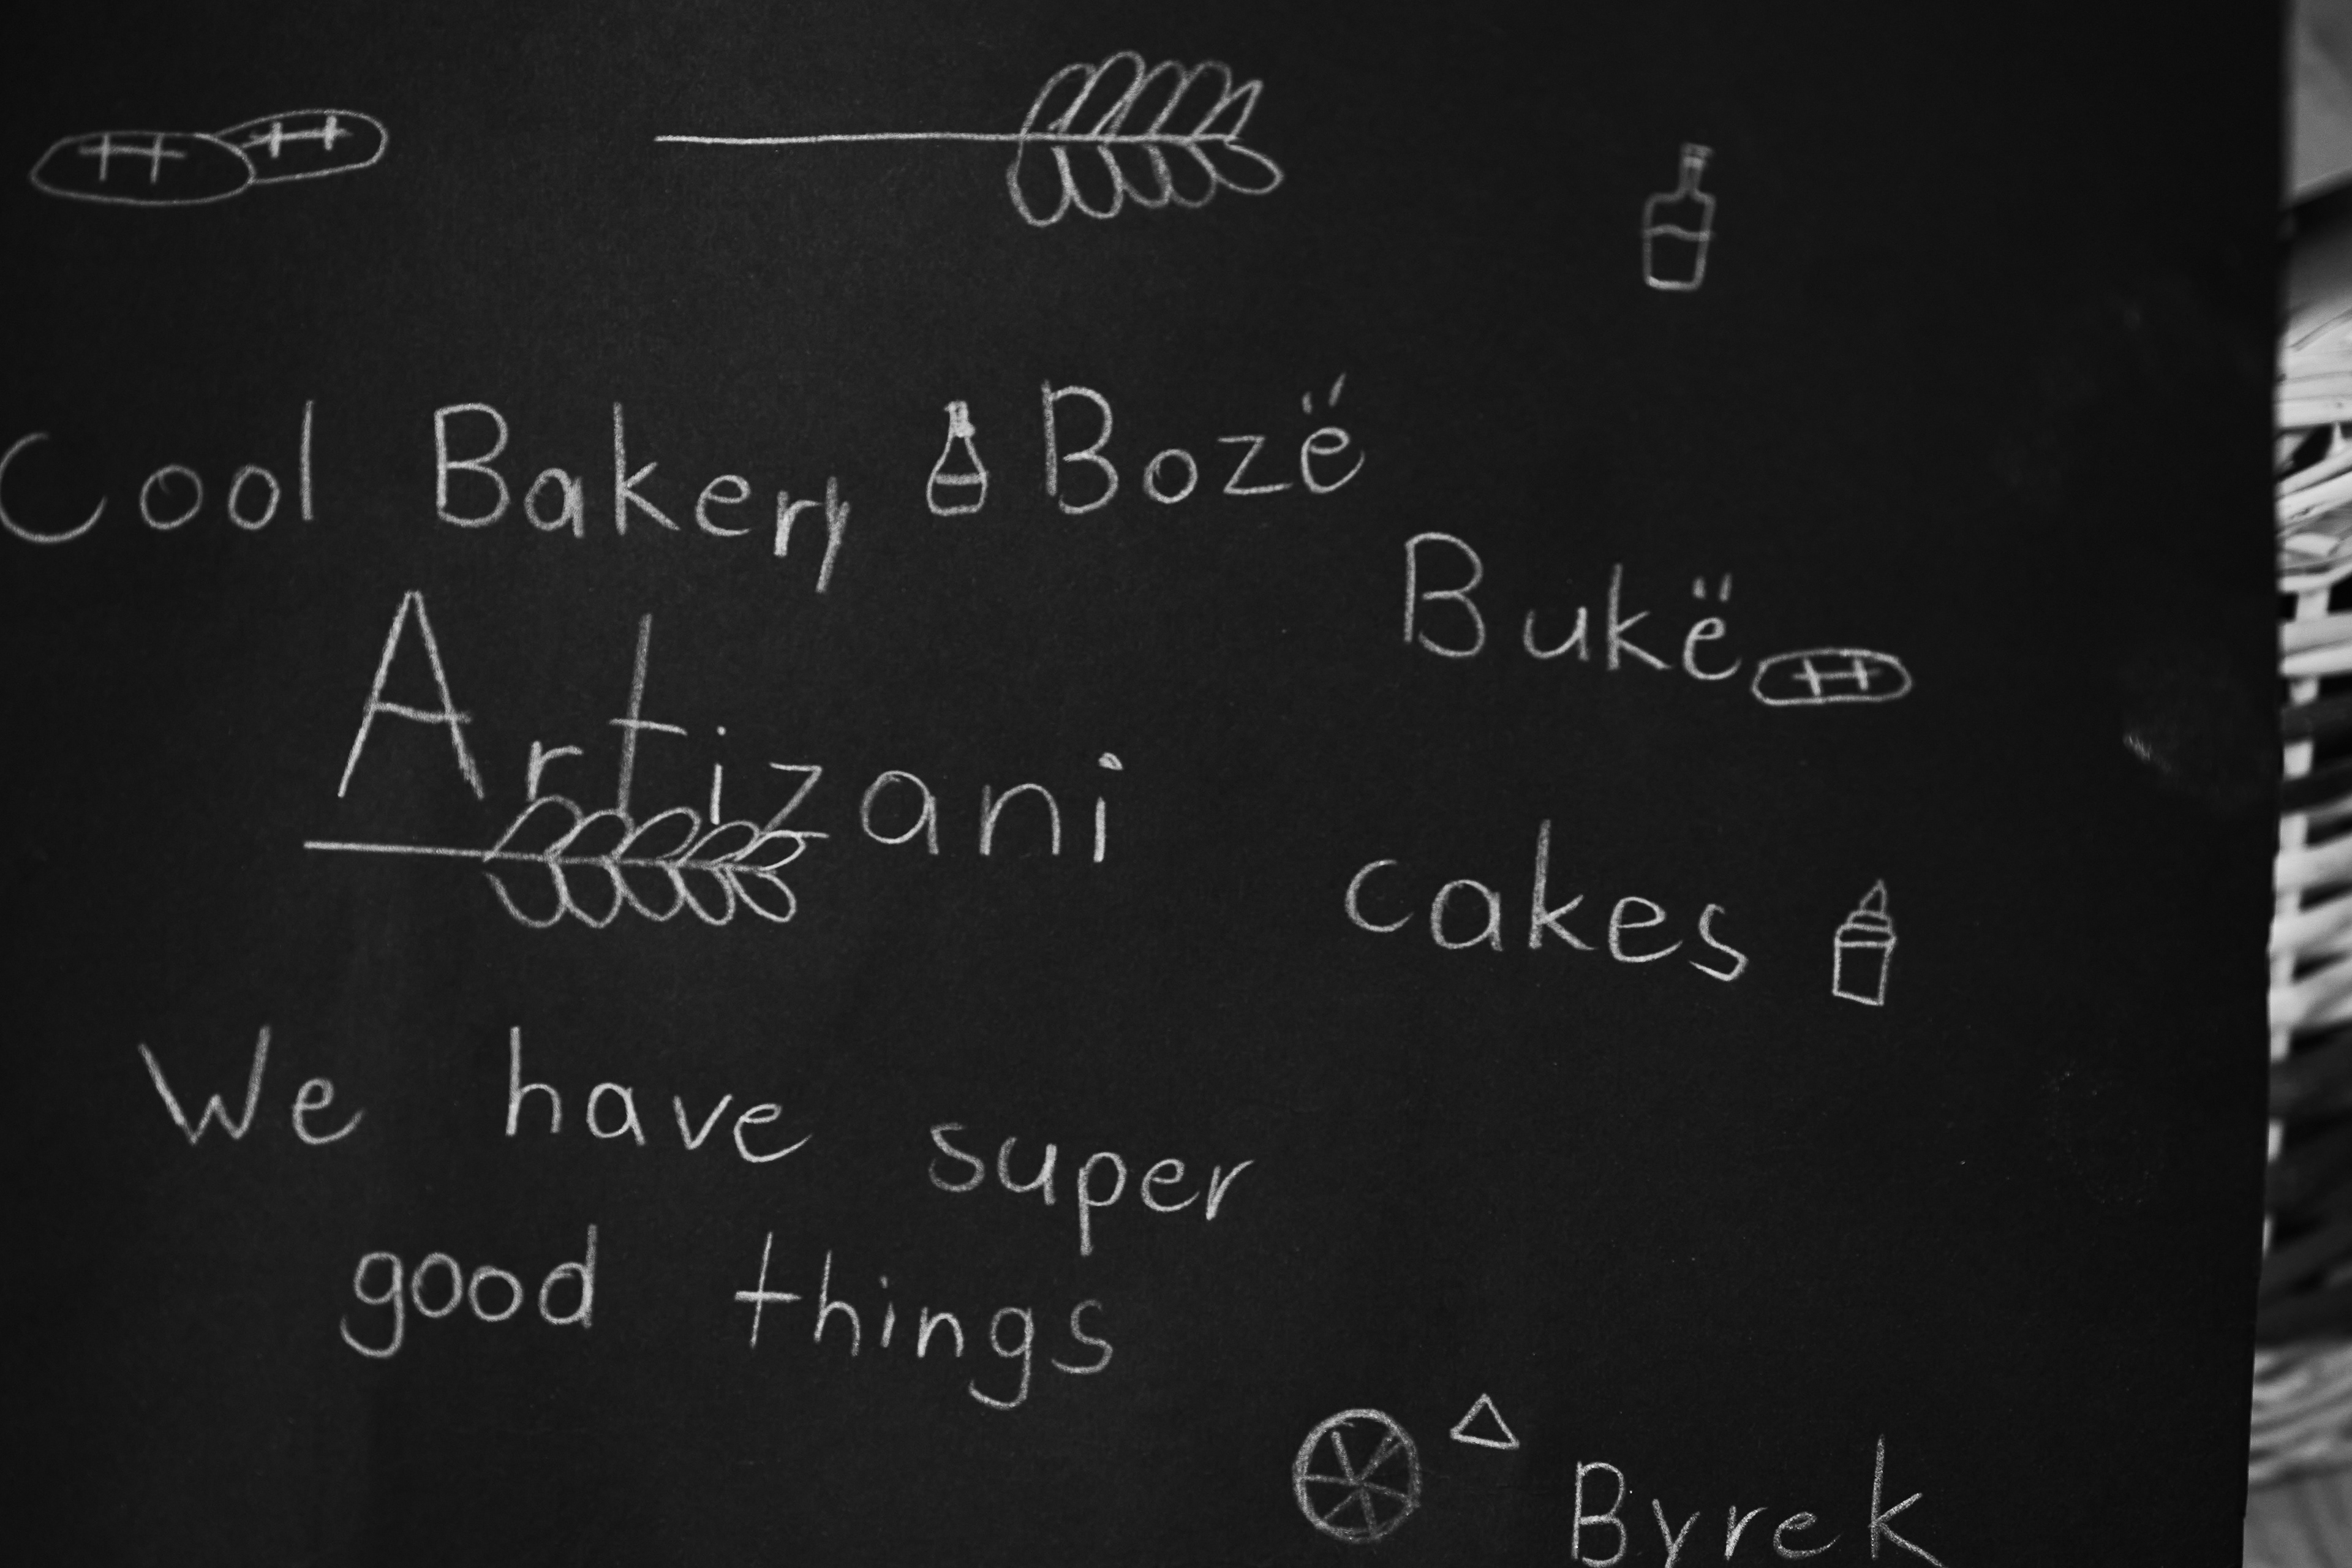 Cool Bakery
Bozë
Bukë
Artizani
cakes
We have super
good things
Byrek